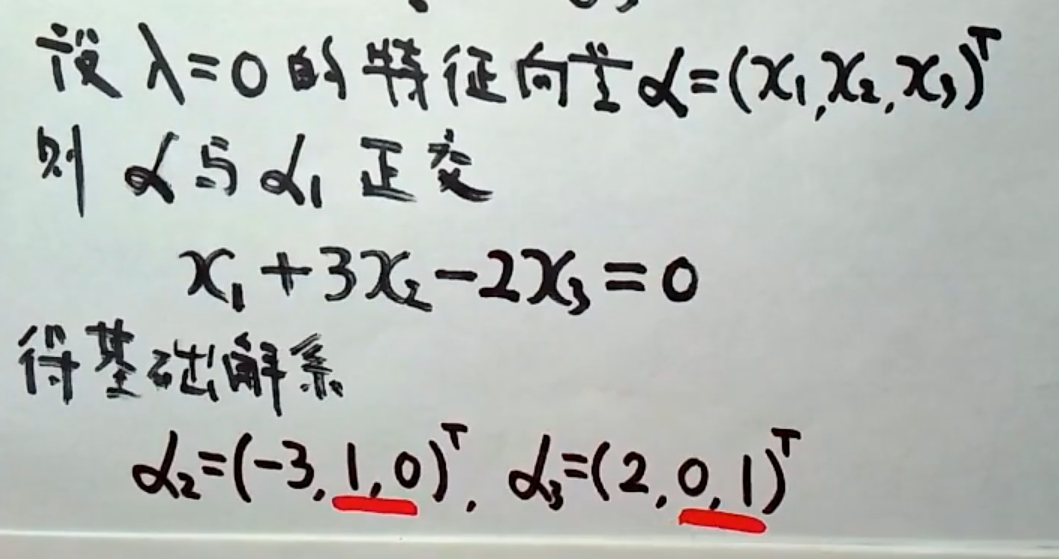 设 λ=0 的特征向量 α=(x₁,x₂,x₃)ᵀ
则 α与α₁ 正交
x₁+3x₂-2x₃=0
得基础解系
α₂=(-3,1,0)ᵀ, α₃=(2,0,1)ᵀ